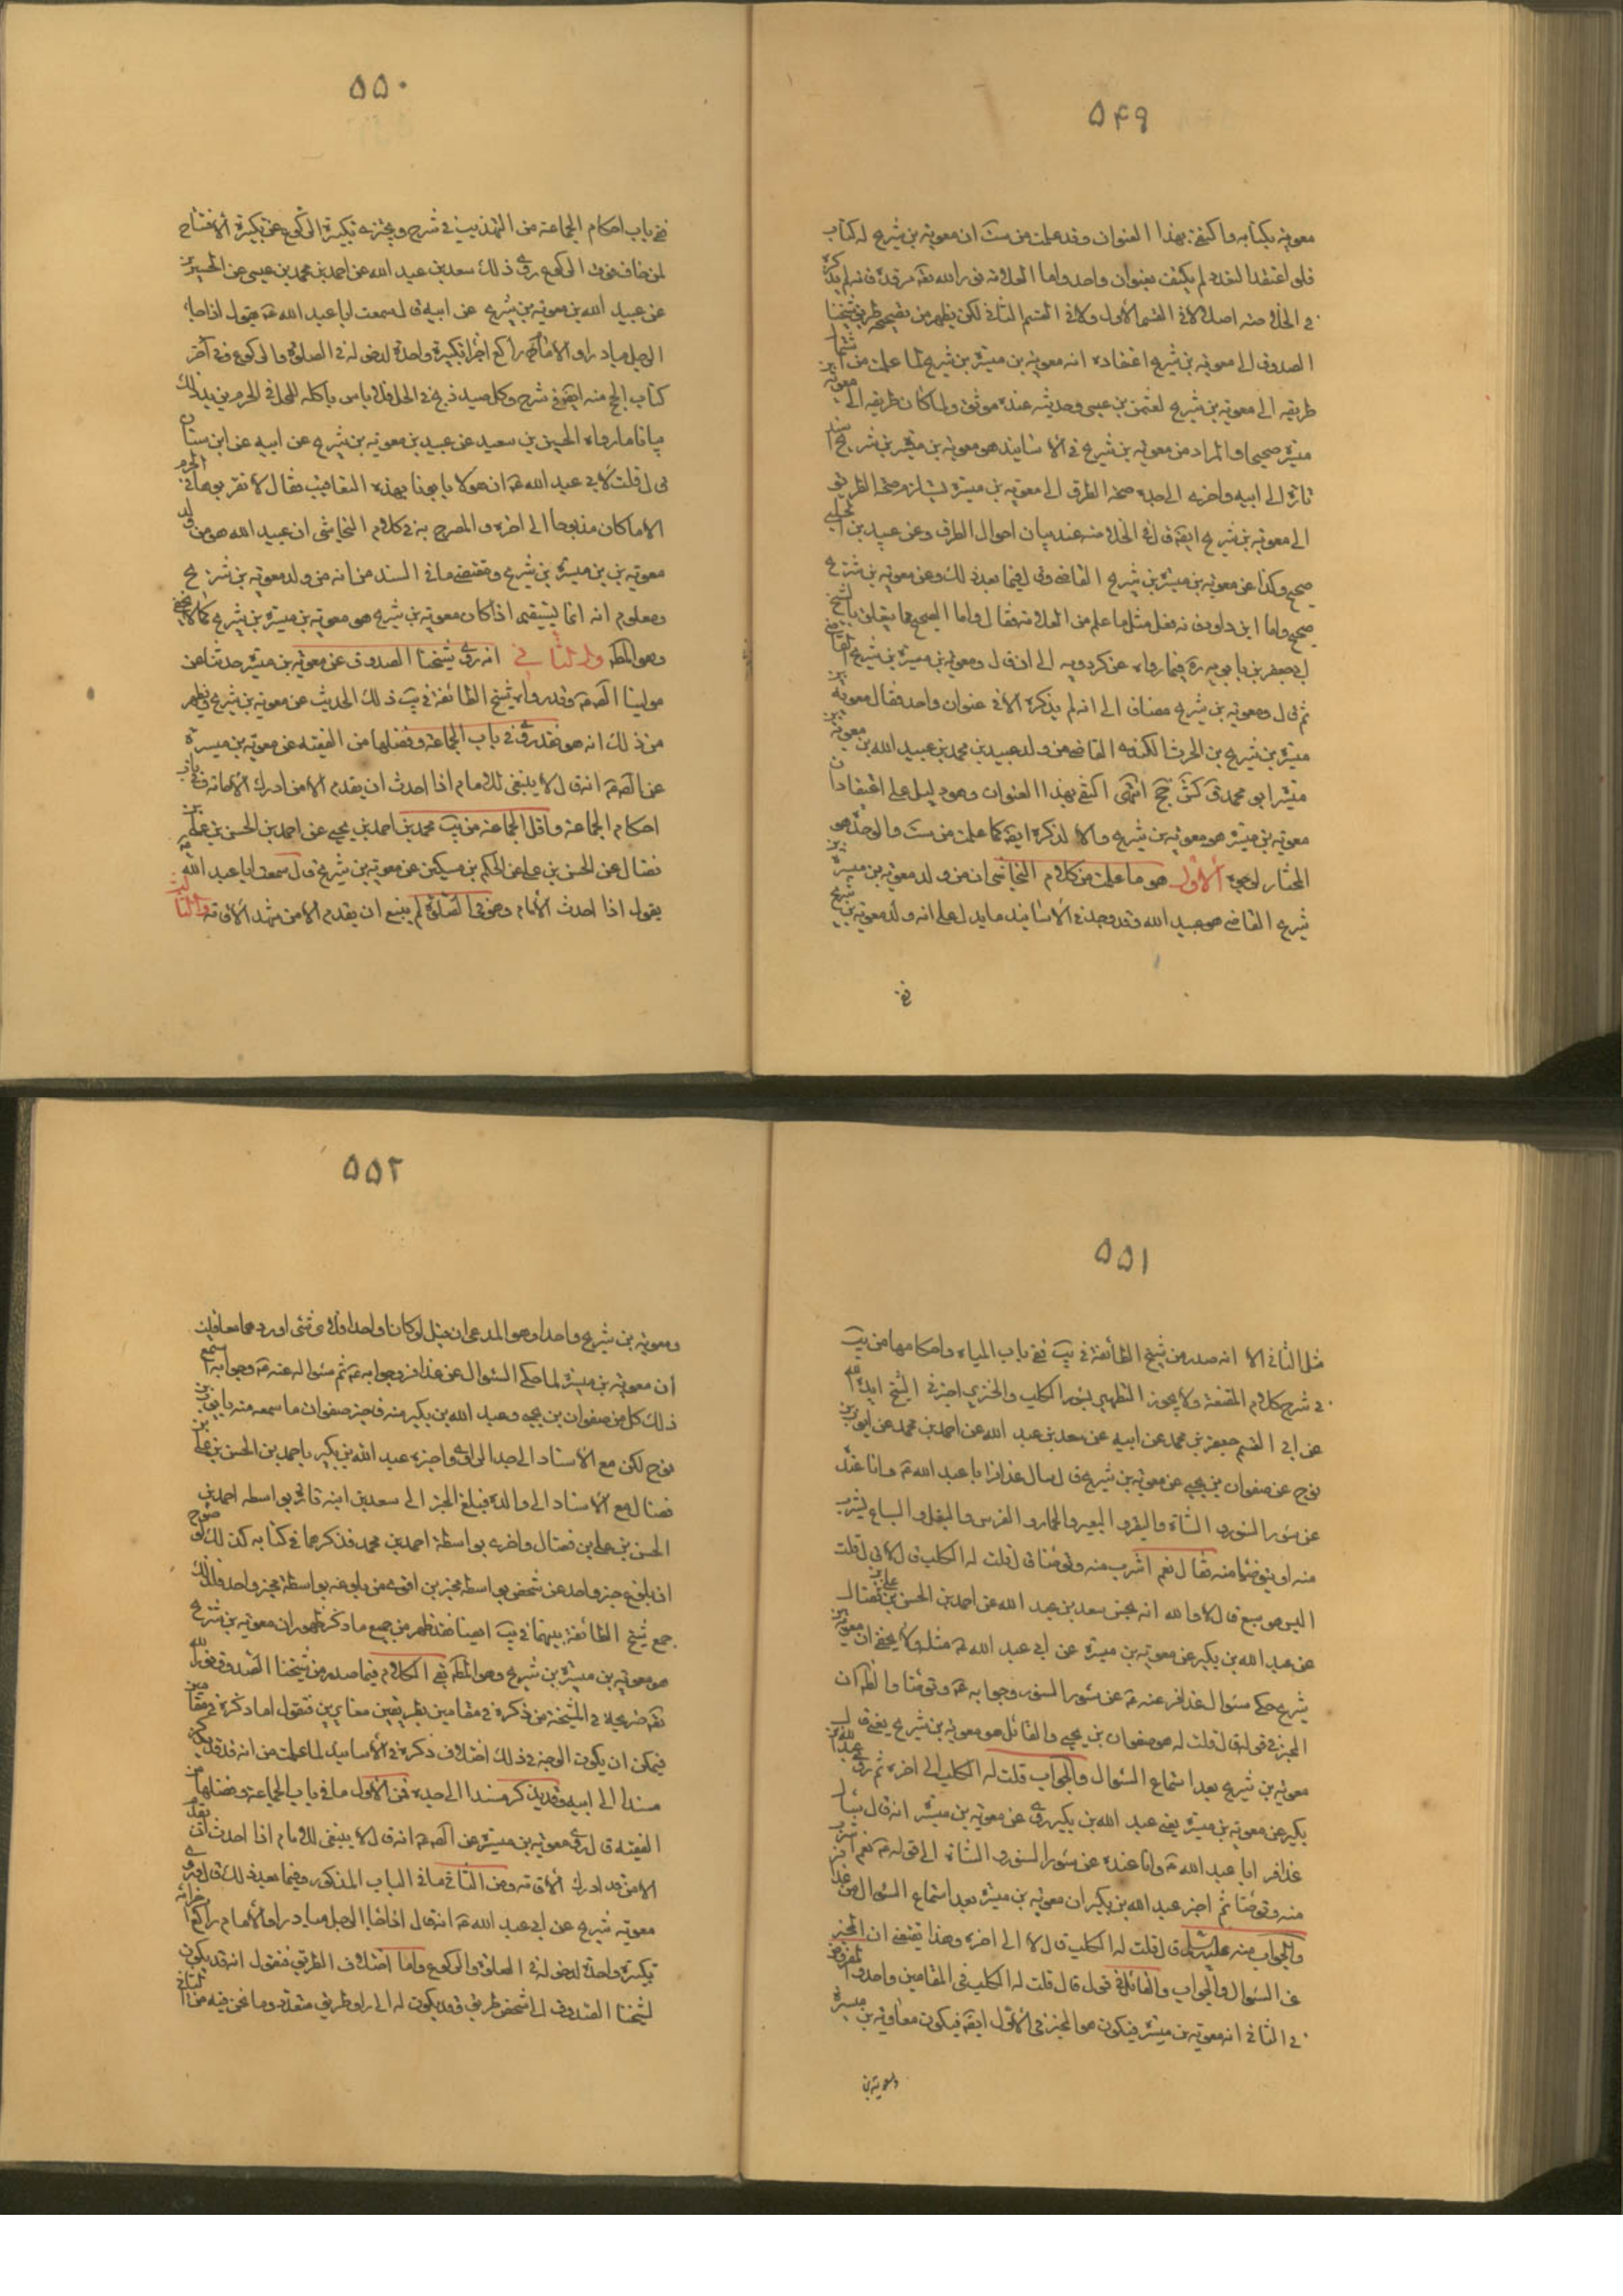 ۵۴۹
معوية بكتابه واكتفى بهذا العنوان وقد علمت من ست ان معوية بن شريح له كتاب
فلو اعتقد التعدد لم يكتف بعنوان واحد واما العلامة نور الله مرقده فانه لم يذكره
في الخلاصة اصلا لا في القسم الأول ولا في القسم الثاني لكن يظهر من تصحيحه طريق شيخنا
الصدوق الى معوية بن شريح اعتقاده انه معوية بن ميسرة بن شريح لما علمت من اشتمال
طريقه الى معوية بن شريح لعثمن بن عيسى وحديثه عنده موثق ولما كان طريقه الى معوية بن
ميسرة صحيحا والمراد من معوية بن شريح في الأسانيد هو معوية بن ميسرة بن شريح اسند
تارة الى ابيه واخرى الى جده صحة الطرق الى معوية بن ميسرة يستلزم صحة الطريق
الى معوية بن شريح ايضا قال في الخلاصة عند بيان احوال الطرق وعن عبيد بن الحلبي
صحيح وكذا عن معوية بن ميسرة بن شريح القاضي وقال فيما بعد ذلك وعن معوية بن شريح
صحيح واما ابن داود فانه فعل مثل ما علم من العلامة فقال واما الصحيح مما يتعلق بالشيخ
ابي جعفر بن بابويه ره فيما رواه عن كردويه الى ان قال ومعوية بن ميسرة بن شريح القاضي
ثم قال ومعوية بن شريح مضافا الى انه لم يذكره الا في عنوان واحد فقال معوية بن
ميسرة بن شريح بن الحرث الكندي القاضي من ولده عبيد بن محمد بن عبيد الله بن معوية بن
ميسرة ابو محمد ق كش جخ انتهى اكتفى بهذا العنوان وهو دليل على اعتقاده ان
معوية بن ميسرة هو معوية بن شريح والا لذكره ايضا كما علمت من ست والوجه هو
المختار لوجوه الأول هو ما علمت من كلام النجاشي ان من ولد معوية بن ميسرة بن
شريح القاضي هو عبيد الله وقد وجد في الأسانيد ما يدل على انه ولد معوية بن شريح
ففي
۵۵۰
ففي باب احكام الجماعة من التهذيب في شرح ويجزيه تكبيرة الركوع عن تكبيرة الافتتاح
لمن خاف فوت الركوع روى ذلك سعد بن عبد الله عن احمد بن محمد بن عيسى عن الحسين
عن عبيد الله بن معوية بن شريح عن ابيه قال سمعت ابا عبد الله ع يقول اذا جاء
الرجل مبادرا والامام راكع اجزأته تكبيرة واحدة لدخوله في الصلوة والركوع وفي آخر
كتاب الحج منه ايضا في شرح وكل صيد ذبح في الحل فلا باس باكله للمحل في الحرم يزيد ذلك
بيانا ما رواه الحسين بن سعيد عن عبيد بن معوية بن شريح عن ابيه عن ابن سنان
قال قلت لأبي عبد الله ع ان هؤلاء ياتونا بهذه اليعاقيب فقال لا تقربوها في الحرم
الا ما كان مذبوحا الى اخره والمصرح به في كلام النجاشي ان عبيد الله هو من ولد
معوية بن ميسرة بن شريح ومقتضى ما في السند من انه من ولد معوية بن شريح
ومعلوم انه انما يستقيم اذا كان معوية بن شريح هو معوية بن ميسرة بن شريح كما لا يخفى
وهو المط والثاني انه روى شيخنا الصدوق عن معوية بن ميسرة حديثا عن
مولينا الصادق ع وقد رواه شيخ الطائفة في يب ذلك الحديث عن معوية بن شريح فيظهر
من ذلك انه هو فقد روى في باب الجماعة وفضلها من الفقيه عن معوية بن ميسرة
عن الصادق ع انه قال لا ينبغي للامام اذا احدث ان يقدم الا من ادرك الاقامة وفي باب
احكام الجماعة واقل الجماعة من يب محمد بن احمد بن يحيى عن احمد بن الحسن بن علي بن
فضال عن الحسن بن علي عن الحكم بن مسكين عن معوية بن شريح قال سمعت ابا عبد الله ع
يقول اذا احدث الأمام وهو في الصلوة لم ينبغ ان يقدم الا من شهد الاقامة والثالث
۵۵۱
مثل الثاني الا انه صدر من شيخ الطائفة في يب ففي باب المياه واحكامها من يب
في شرح كلام المقنعة ولا يجوز التطهير بسؤر الكلب والخنزير اخبرني الشيخ ايده الله
عن ابي القسم جعفر بن محمد عن ابيه عن سعد بن عبد الله عن احمد بن محمد عن ايوب بن
نوح عن صفوان بن يحيى عن معوية بن شريح قال سال عذافر ابا عبد الله ع وانا عنده
عن سؤر السنور والشاة والبقر والبعير والحمار والفرس والبغل والسباع يشرب
منه او يتوضأ منه فقال نعم اشرب منه وتوضأ قال قلت له الكلب قال لا قال قلت
اليس هو سبع قال لا والله انه نجس سعد بن عبد الله عن احمد بن الحسن بن علي بن فضال
عن عبد الله بن بكير عن معوية بن ميسرة عن ابي عبد الله ع مثله ولا يخفى ان معوية بن
شريح حكى سئوال عذافر عنه ع عن سؤر السنور وجوابه ع وتوضأ والظ ان
المخبر في قوله قال قلت له هو صفوان بن يحيى والقائل هو معوية بن شريح يعني قال
معوية بن شريح بعد استماع السئوال والجواب قلت له الكلب الى اخره ثم روى عبد الله بن
بكير عن معوية بن ميسرة يعني عبد الله بن بكير روى عن معوية بن ميسرة انه قال سئال
عذافر ابا عبد الله ع وانا عنده عن سؤر السنور والشاة الى قوله ع نعم اشرب
منه وتوضأ ثم اخبر عبد الله بن بكير ان معوية بن ميسرة بعد استماع السئوال من عذافر
والجواب منه عليه السلام قال قلت له الكلب قال لا الى اخره وهذا يقتضي ان المخبر
عن السئوال والجواب والقائل في قوله قال قلت له الكلب في المقامين واحد والمفروض
في الثاني انه معوية بن ميسرة فيكون هو المخبر في الأول ايضا فيكون معاوية بن ميسرة
ومعوية بن
۵۵۲
ومعوية بن شريح واحدا وهو المدعى ان قيل لو كانا واحدا فلاي شئ اوردهما معا قلت
ان معوية بن ميسرة لما حكى السئوال عن عذافر وجوابه ع ثم سئواله عنه ع وجوابه استمع
ذلك كل من صفوان بن يحيى وعبد الله بن بكير منه فاخبر صفوان ما سمعه منه بايوب بن
نوح لكن مع الأسناد الى جد الراوي واخبره عبد الله بن بكير باحمد بن الحسن بن علي بن
فضال مع الأسناد الى والده فبلغ الخبر الى سعد بن ابنه تارة بواسطه احمد بن
الحسن بن علي بن فضال واخرى بواسطة احمد بن محمد فذكرهما في كتابه كذلك لوضوح
ان بلوغ خبر واحد عن شخص بواسطة مخبرين اقوى من بلوغه بواسطة مخبر واحد ولذلك
جمع شيخ الطائفة بينهما في يب ايضا فقد ظهر من جميع ما ذكر ظهور ان معوية بن شريح
هو معوية بن ميسرة بن شريح وهو المط بقي الكلام فيما صدر من شيخنا الصدوق نور الله
مضجعه في المشيخة من ذكره في مقامين بطريقين مغايرين فنقول اما ذكره في مقامين
فيمكن ان يكون الوجه في ذلك اختلاف ذكره في الأسانيد لما علمت من انه قد يذكر
مسندا الى ابيه وقد يذكر مسندا الى جده فمن الأول ما في باب الجماعة وفضلها من
الفقيه قال روى معوية بن ميسرة عن الصادق ع انه قال لا ينبغي للامام اذا احدث ان يقدم
الا من قد ادرك الاقامة ومن الثاني ما في الباب المذكور وفيما بعد ذلك قال وروى
معوية بن شريح عن ابي عبد الله ع انه قال اذا جاء الرجل مبادرا والأمام راكع اجزأته
تكبيرة واحدة لدخوله في الصلوة والركوع واما اختلاف الطريق فنقول انه قد يكون
لشيخنا الصدوق الى شخص طريق وقد يكون له الى راو طريق متعدد وما نحن فيه من الثاني